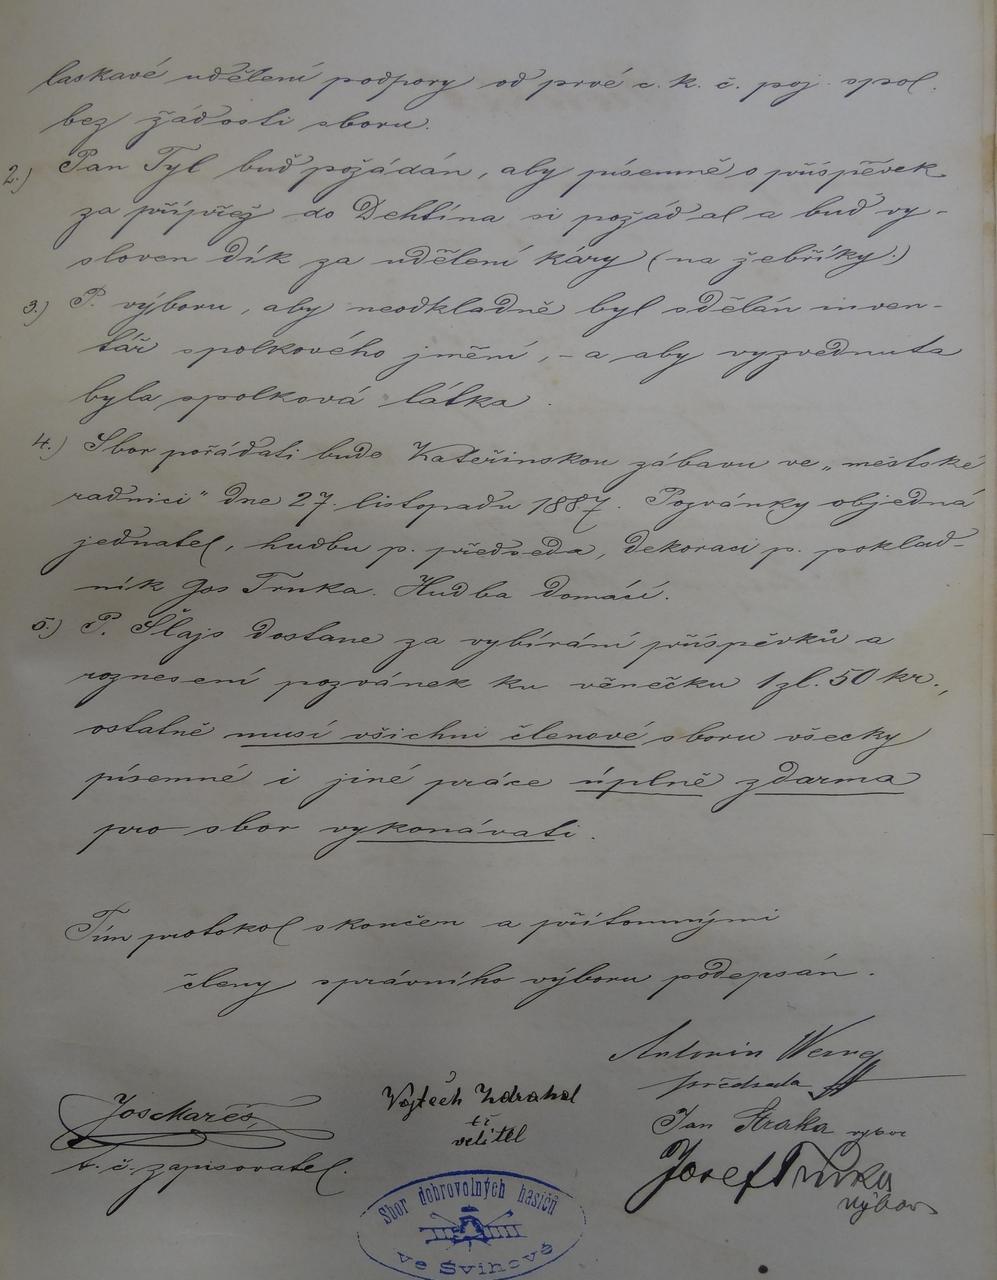 laskavé udělení podpory od prvé c. k. č. poj. spol.
bez žádosti sboru.
2.) Pan Tyl buď požádán, aby písemně o příspěvek
za přípřež do Dehtína si požádal a buď vy-
sloven dík za udělení káry (na žebříky.)
3.) P. výboru, aby neodkladně byl sdělán inven-
tář spolkového jmění, - a aby vyzvednuta
byla spolková látka.
4.) Sbor pořádati bude Kateřinskou zábavu ve „městské
radnici" dne 27. listopadu 1887. Pozvánky objedná
jednatel, hudbu p. předseda, dekoraci p. poklad-
ník Jos Trnka. Hudba domácí.
5.) P. Šlajs dostane za vybírání příspěvků a
roznesení pozvánek ku věnečku 1 zl. 50 kr.,
ostatně musí všichni členové sboru všecky
písemné i jiné práce úplně zdarma
pro sbor vykonávati.
Tím protokol skončen a přítomnými
členy správního výboru podepsán.
Antonín
předseda
Jos Mareš,
t. č. zapisovatel.
Vojtěch Zdrahal
velitel
Jan Straka výbor
Josef Trnka
výbor
Sbor dobrovolných hasičů
ve Švihově